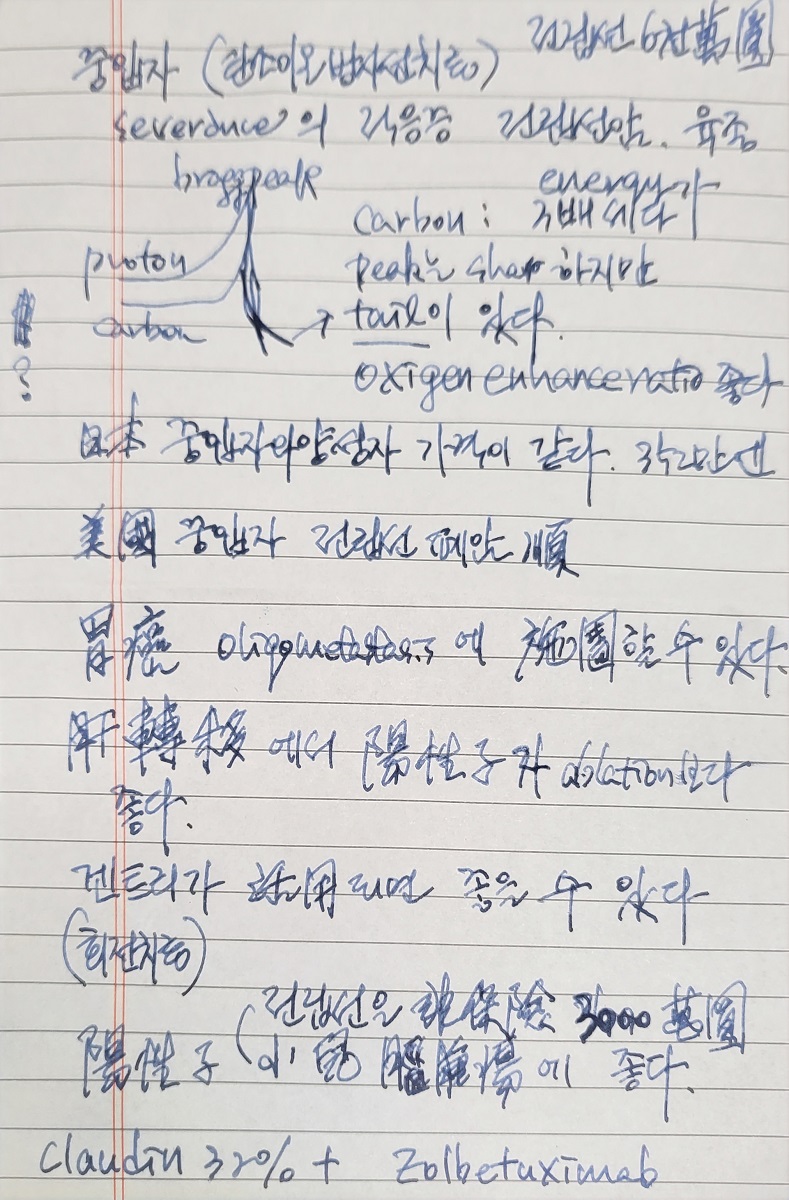 전립선 6천萬圓
중입자 (탄소이온방사선치료)
severance의 적응증 전립선암. 육종
bragg peak energy가
carbon: 3배 세다
proton peak는 sharp 하지만
carbon → tail이 있다.
?
oxigen enhance ratio 좋다
日本 중입자와양성자 가격이 같다. 3억2만엔
美國 중입자 전립선 폐암 順
胃癌 oligometastasis에 施圖할 수 있다.
肝轉移에서 陽性子가 ablation보다
좋다.
겐트리가 活用되면 좋을 수 있다
(회전치료)
전립선은 非保險 3000萬圓
陽性子 (小兒 腦腫瘍에 좋다.
Claudin 32% + Zolbetuximab